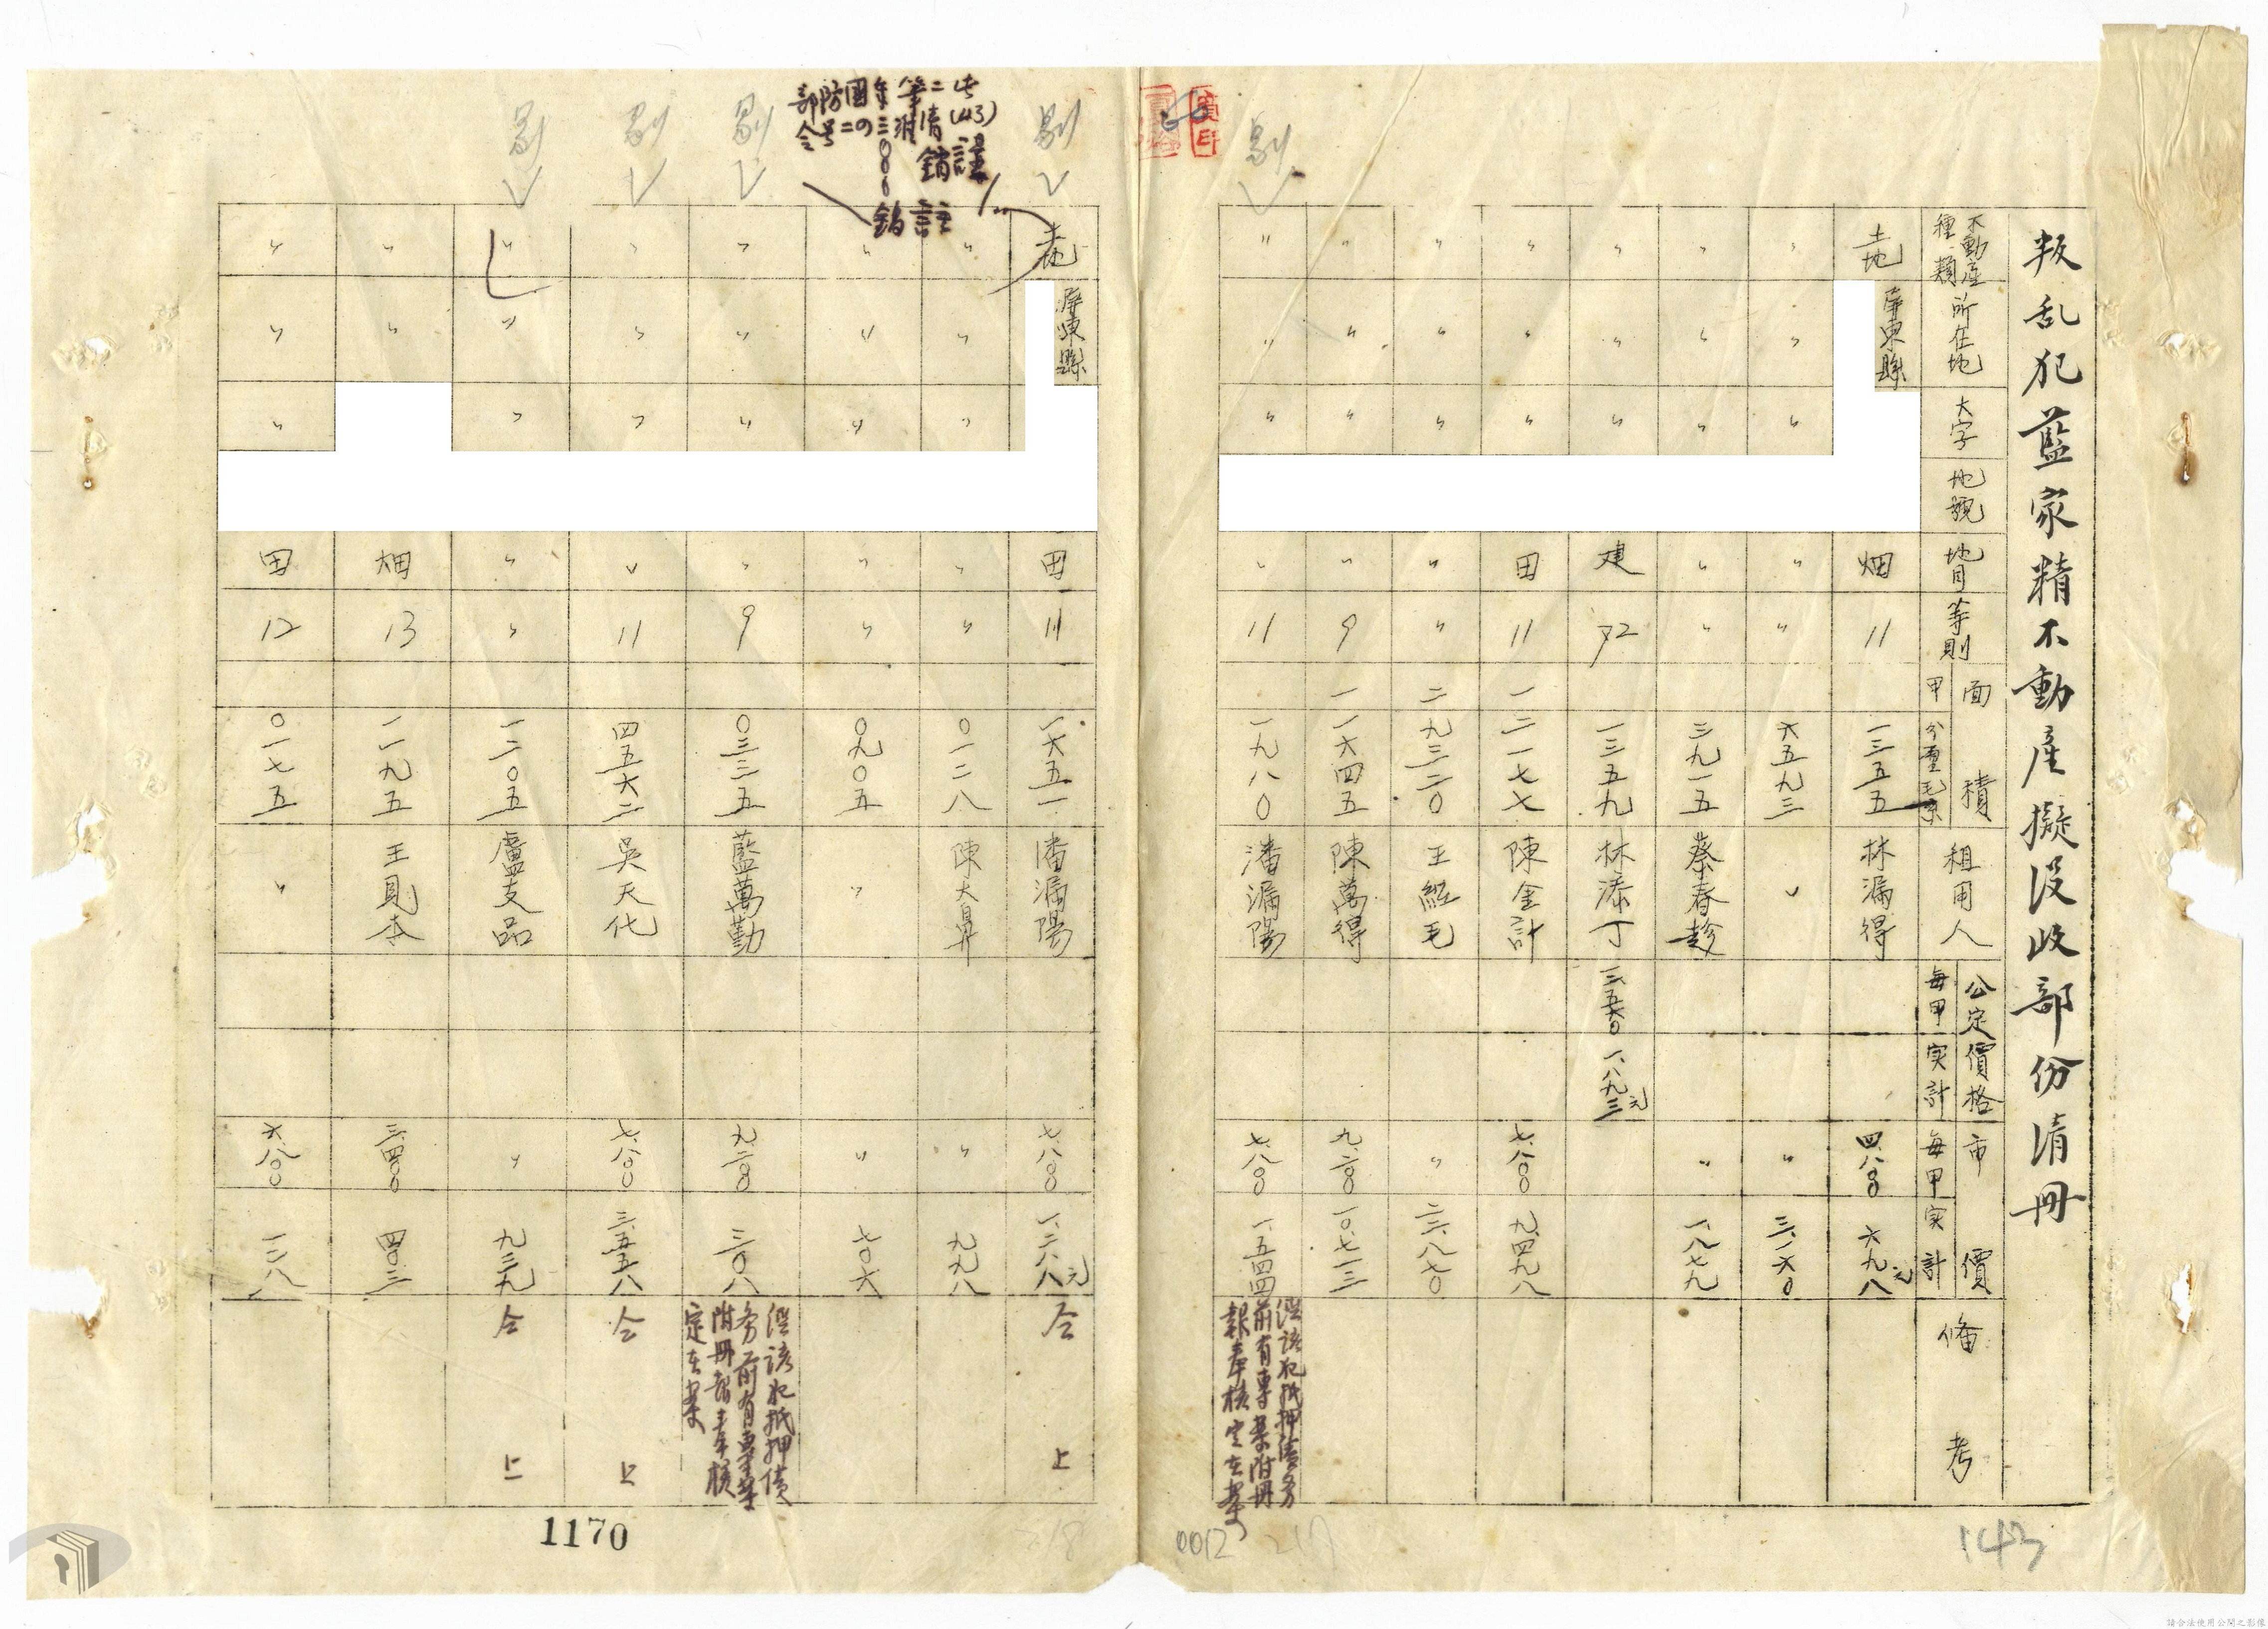 叛乱犯藍家精不動産擬没收部份清冊
不動產種類 所在地 大字 地號 地目 等則 面積 甲 分厘毛系 租用人 公定價格 每甲 実計 市價 每甲 実計 備考
土地 屏東縣 畑 11 一三五五 林漏得 四、八〇〇 六九八元
〃 〃 〃 〃 〃 六五九三 〃 〃 三、一六〇
〃 〃 〃 〃 〃 三九一五 蔡春趁 〃 一、八七九
〃 〃 〃 建 72 一三五九 林添丁 一、八九三元
〃 〃 〃 田 11 一二一七七 陳金計 七、八〇〇 九、四九八
〃 〃 〃 〃 〃 二九三二〇 王經毛 〃 二二、八七〇
〃 〃 〃 〃 9 一一六四五 陳萬得 九、二〇〇 一〇、七一三
剔
〃 〃 〃 〃 11 一九八〇 潘漏陽 七、八〇〇 一、五四四
經該犯抵押債务
前有專案附冊
報奉核定在案
0012 217
143
剔
土地 屏東縣 田 11 一六五一 潘漏陽 七、八〇〇 一、二八八元 仝上
〃 〃 〃 〃 〃 〇一二八 陳大鼻 〃 九九八
〃 〃 〃 〃 〃 〇九〇五 〃 〃 七〇六
此(43)
二清
筆准
年三〇八
國防
部令
註銷
剔
〃 〃 〃 〃 9 〇三三五 藍萬勤 九、二〇〇 三〇八
經該犯抵押債
务前有專案
附冊報奉核
定在案
剔
〃 〃 〃 〃 11 四五六二 吳天化 七、八〇〇 三、五五八 仝上
剔
〃 〃 〃 〃 〃 一二〇五 盧支品 〃 九三九 仝上
〃 〃 畑 13 一一九五 王見本 三、四〇〇 四〇三
〃 〃 〃 田 12 〇一七五 〃 六、八〇〇 一一八
1170
218
請合法使用公開之影像